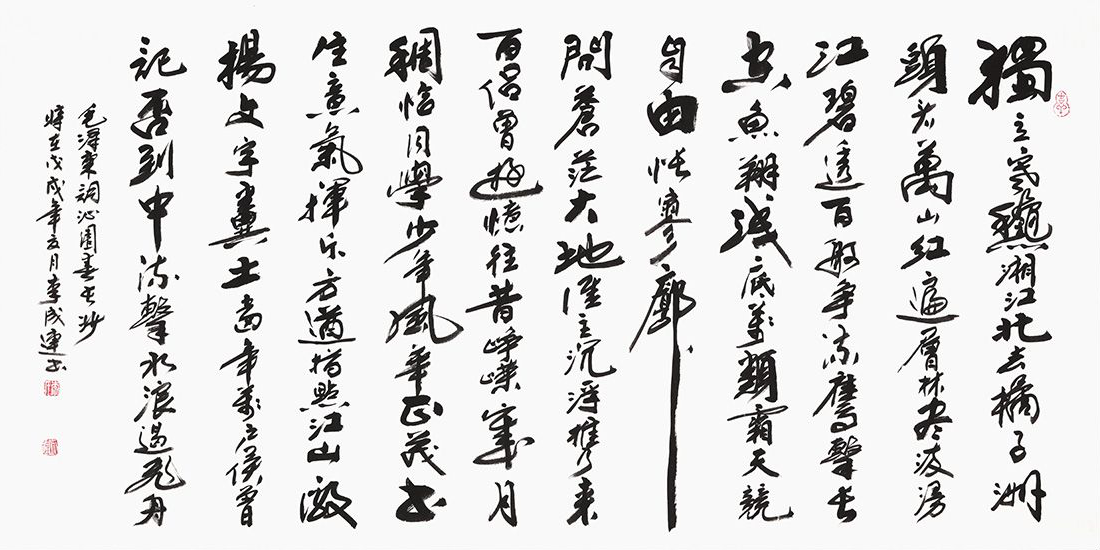 獨立寒龝湘江北去橘子洲
頭看萬山紅遍層林尽染漫
江碧透百舸爭流鷹擊長
空魚翔淺底萬類霜天競
自由悵寥廓
問蒼茫大地誰主沉浮攜來
百侶曾遊憶往昔崢嶸歲月
稠恰同學少年風華正茂書
生意氣揮斥方遒指點江山激
揚文字糞土當年萬户侯曾
記否到中流擊水浪遏飛舟
毛澤東詞沁園春長沙
時在戊戌年五月李成連書